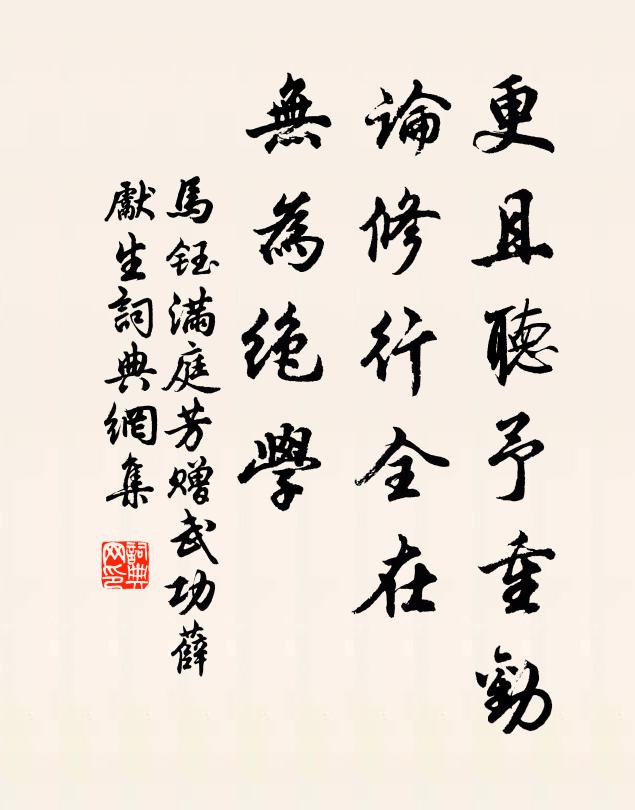 更且聽予重勸
論修行全在
無為絕學
馬鈺滿庭芳赠武功薛
獻生詞典網集
詞典
网印